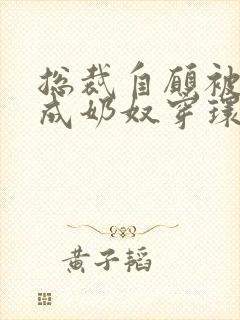 总裁自愿被
成奶奴穿环
黄子韬